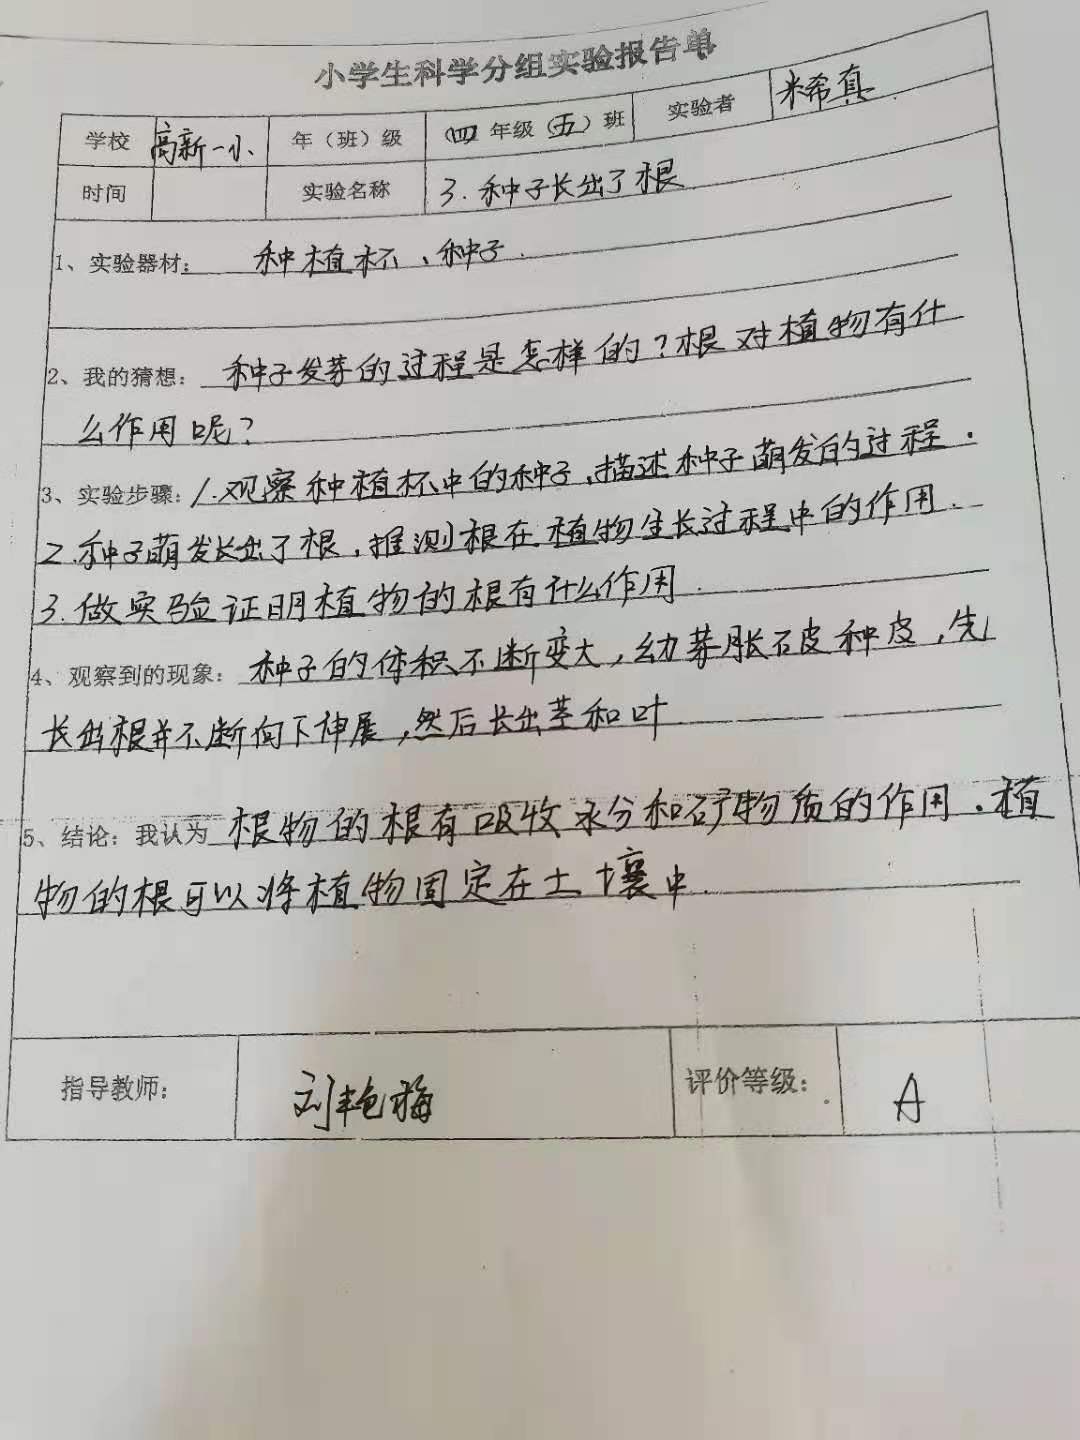 小学生科学分组实验报告单
学校 高新一小 年（班）级 四年级（五）班 实验者 米希真
时间 实验名称 3.种子长出了根
1、实验器材：种植杯、种子.
2、我的猜想：种子发芽的过程是怎样的？根对植物有什
么作用呢？
3、实验步骤：1.观察种植杯中的种子,描述种子萌发的过程.
2.种子萌发长出了根,推测根在植物生长过程中的作用.
3.做实验证明植物的根有什么作用.
4、观察到的现象：种子的体积不断变大,幼芽胀破种皮,先
长出根并不断向下伸展,然后长出茎和叶
5、结论：我认为 根物的根有吸收水分和矿物质的作用.植
物的根可以将植物固定在土壤中.
指导教师： 刘艳梅 评价等级： A